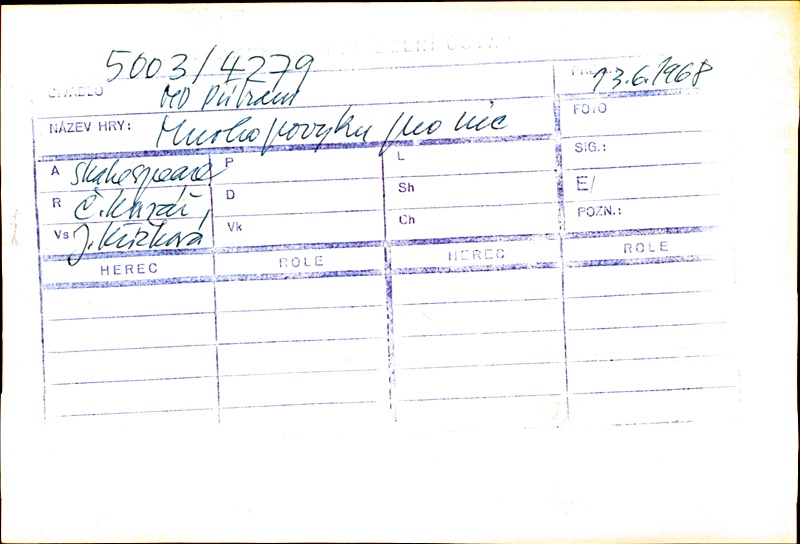 5003/4279
DIVADLO MD Příbram 13.6.1968
NÁZEV HRY: Mnoho povyku pro nic FOTO
A Shakespeare P L SIG.:
R Č. Kovář, D Sh E/
Vs J. Křížková Vk Ch POZN.:
HEREC ROLE HEREC ROLE